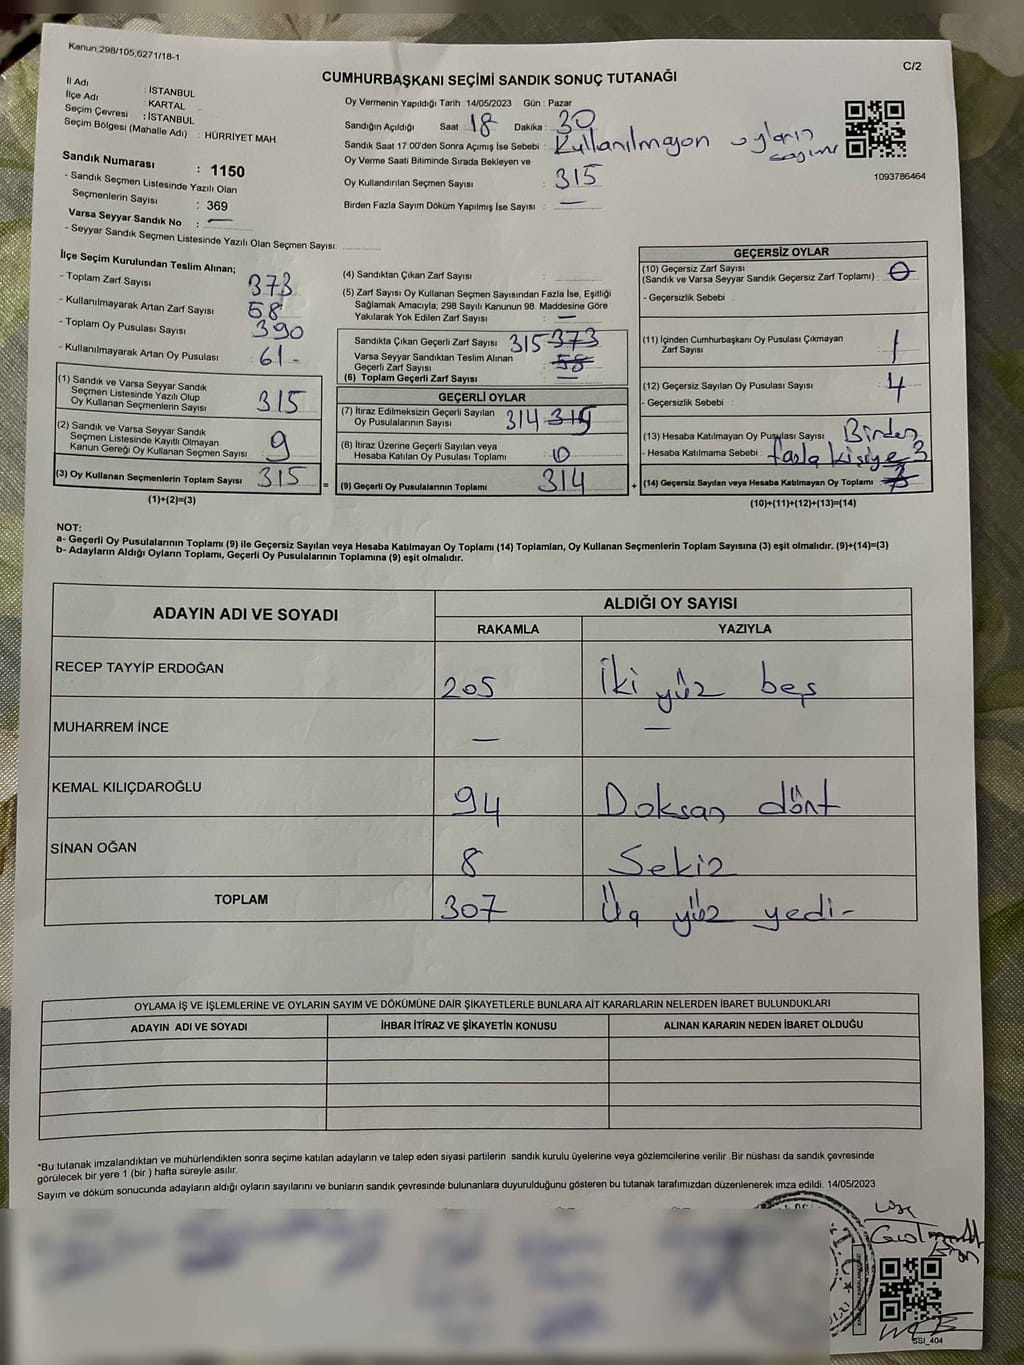 Kanun,298/105,6271/18-1
C/2
CUMHURBAŞKANI SEÇİMİ SANDIK SONUÇ TUTANAĞI
İl Adı : İSTANBUL
İlçe Adı : KARTAL
Seçim Çevresi : İSTANBUL
Seçim Bölgesi (Mahalle Adı) : HÜRRİYET MAH
Sandık Numarası : 1150
- Sandık Seçmen Listesinde Yazılı Olan
Seçmenlerin Sayısı : 369
Varsa Seyyar Sandık No : —
- Seyyar Sandık Seçmen Listesinde Yazılı Olan Seçmen Sayısı:
Oy Vermenin Yapıldığı Tarih 14/05/2023 Gün : Pazar
Sandığın Açıldığı Saat 18 Dakika : 30
Sandık Saat 17:00'den Sonra Açımış İse Sebebi : Kullanılmayon oyların sayımı
Oy Verme Saati Bitiminde Sırada Bekleyen ve
Oy Kullandırılan Seçmen Sayısı : 315
Birden Fazla Sayım Döküm Yapılmış İse Sayısı : —
1093786464
İlçe Seçim Kurulundan Teslim Alınan;
- Toplam Zarf Sayısı 373
- Kullanılmayarak Artan Zarf Sayısı 58
- Toplam Oy Pusulası Sayısı 390
- Kullanılmayarak Artan Oy Pusulası 61-
(1) Sandık ve Varsa Seyyar Sandık
Seçmen Listesinde Yazılı Olup
Oy Kullanan Seçmenlerin Sayısı 315
(2) Sandık ve Varsa Seyyar Sandık
Seçmen Listesinde Kayıtlı Olmayan
Kanun Gereği Oy Kullanan Seçmen Sayısı 9
(3) Oy Kullanan Seçmenlerin Toplam Sayısı 315 =
(1)+(2)=(3)
(4) Sandıktan Çıkan Zarf Sayısı :
(5) Zarf Sayısı Oy Kullanan Seçmen Sayısından Fazla İse, Eşitliği
Sağlamak Amacıyla; 298 Sayılı Kanunun 98. Maddesine Göre
Yakılarak Yok Edilen Zarf Sayısı : —
Sandıkta Çıkan Geçerli Zarf Sayısı 315 373
Varsa Seyyar Sandıktan Teslim Alınan
Geçerli Zarf Sayısı 58
(6) Toplam Geçerli Zarf Sayısı —
GEÇERLİ OYLAR
(7) İtiraz Edilmeksizin Geçerli Sayılan
Oy Pusulasının Sayısı 314 315
(8) İtiraz Üzerine Geçerli Sayılan veya
Hesaba Katılan Oy Pusulası Toplamı 0
(9) Geçerli Oy Pusulalarının Toplamı 314 +
GEÇERSİZ OYLAR
(10) Geçersiz Zarf Sayısı
(Sandık ve Varsa Seyyar Sandık Geçersiz Zarf Toplamı) : 0
- Geçersizlik Sebebi :
(11) İçinden Cumhurbaşkanı Oy Pusulası Çıkmayan
Zarf Sayısı 1
(12) Geçersiz Sayılan Oy Pusulası Sayısı : 4
- Geçersizlik Sebebi :
(13) Hesaba Katılmayan Oy Pusulası Sayısı : Birden
- Hesaba Katılmama Sebebi : fazla kişiye 3
(14) Geçersiz Sayılan veya Hesaba Katılmayan Oy Toplamı
(10)+(11)+(12)+(13)=(14)
NOT:
a- Geçerli Oy Pusulalarının Toplamı (9) ile Geçersiz Sayılan veya Hesaba Katılmayan Oy Toplamı (14) Toplamları, Oy Kullanan Seçmenlerin Toplam Sayısına (3) eşit olmalıdır. (9)+(14)=(3)
b- Adayların Aldığı Oyların Toplamı, Geçerli Oy Pusulalarının Toplamına (9) eşit olmalıdır.
ADAYIN ADI VE SOYADI ALDIĞI OY SAYISI
RAKAMLA YAZIYLA
RECEP TAYYİP ERDOĞAN 205 İki yüz beş
MUHARREM İNCE — —
KEMAL KILIÇDAROĞLU 94 Doksan dört
SİNAN OĞAN 8 Sekiz
TOPLAM 307 Üç yüz yedi-
OYLAMA İŞ VE İŞLEMLERİNE VE OYLARIN SAYIM VE DÖKÜMÜNE DAİR ŞİKAYETLERLE BUNLARA AİT KARARLARIN NELERDEN İBARET BULUNDUKLARI
ADAYIN ADI VE SOYADI İHBAR İTİRAZ VE ŞİKAYETİN KONUSU ALINAN KARARIN NEDEN İBARET OLDUĞU
*Bu tutanak imzalandıktan ve mühürlendikten sonra seçime katılan adayların ve talep eden siyasi partilerin sandık kurulu üyelerine veya gözlemcilerine verilir .Bir nüshası da sandık çevresinde
görülecek bir yere 1 (bir ) hafta süreyle asılır.
Sayım ve döküm sonucunda adayların aldığı oyların sayılarını ve bunların sandık çevresinde bulunanlara duyurulduğunu gösteren bu tutanak tarafımızdan düzenlenerek imza edildi. 14/05/2023
SSI_404